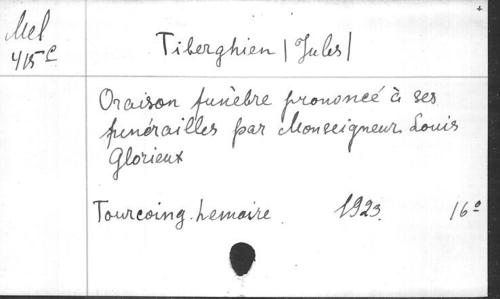 Mel
415 C
Tiberghien (Jules)
Oraison funèbre prononcé à ses
funérailles par Monseigneur Louis
Glorieux
Tourcoing. Lemaire 1923. 16°